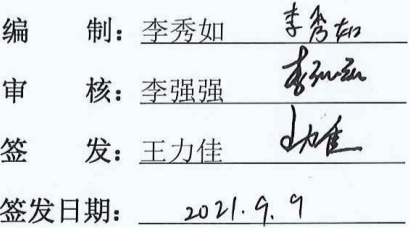 编 制：李秀如 李秀如
审 核：李强强 李强强
签 发：王力佳 王力佳
签发日期：2021.9.9